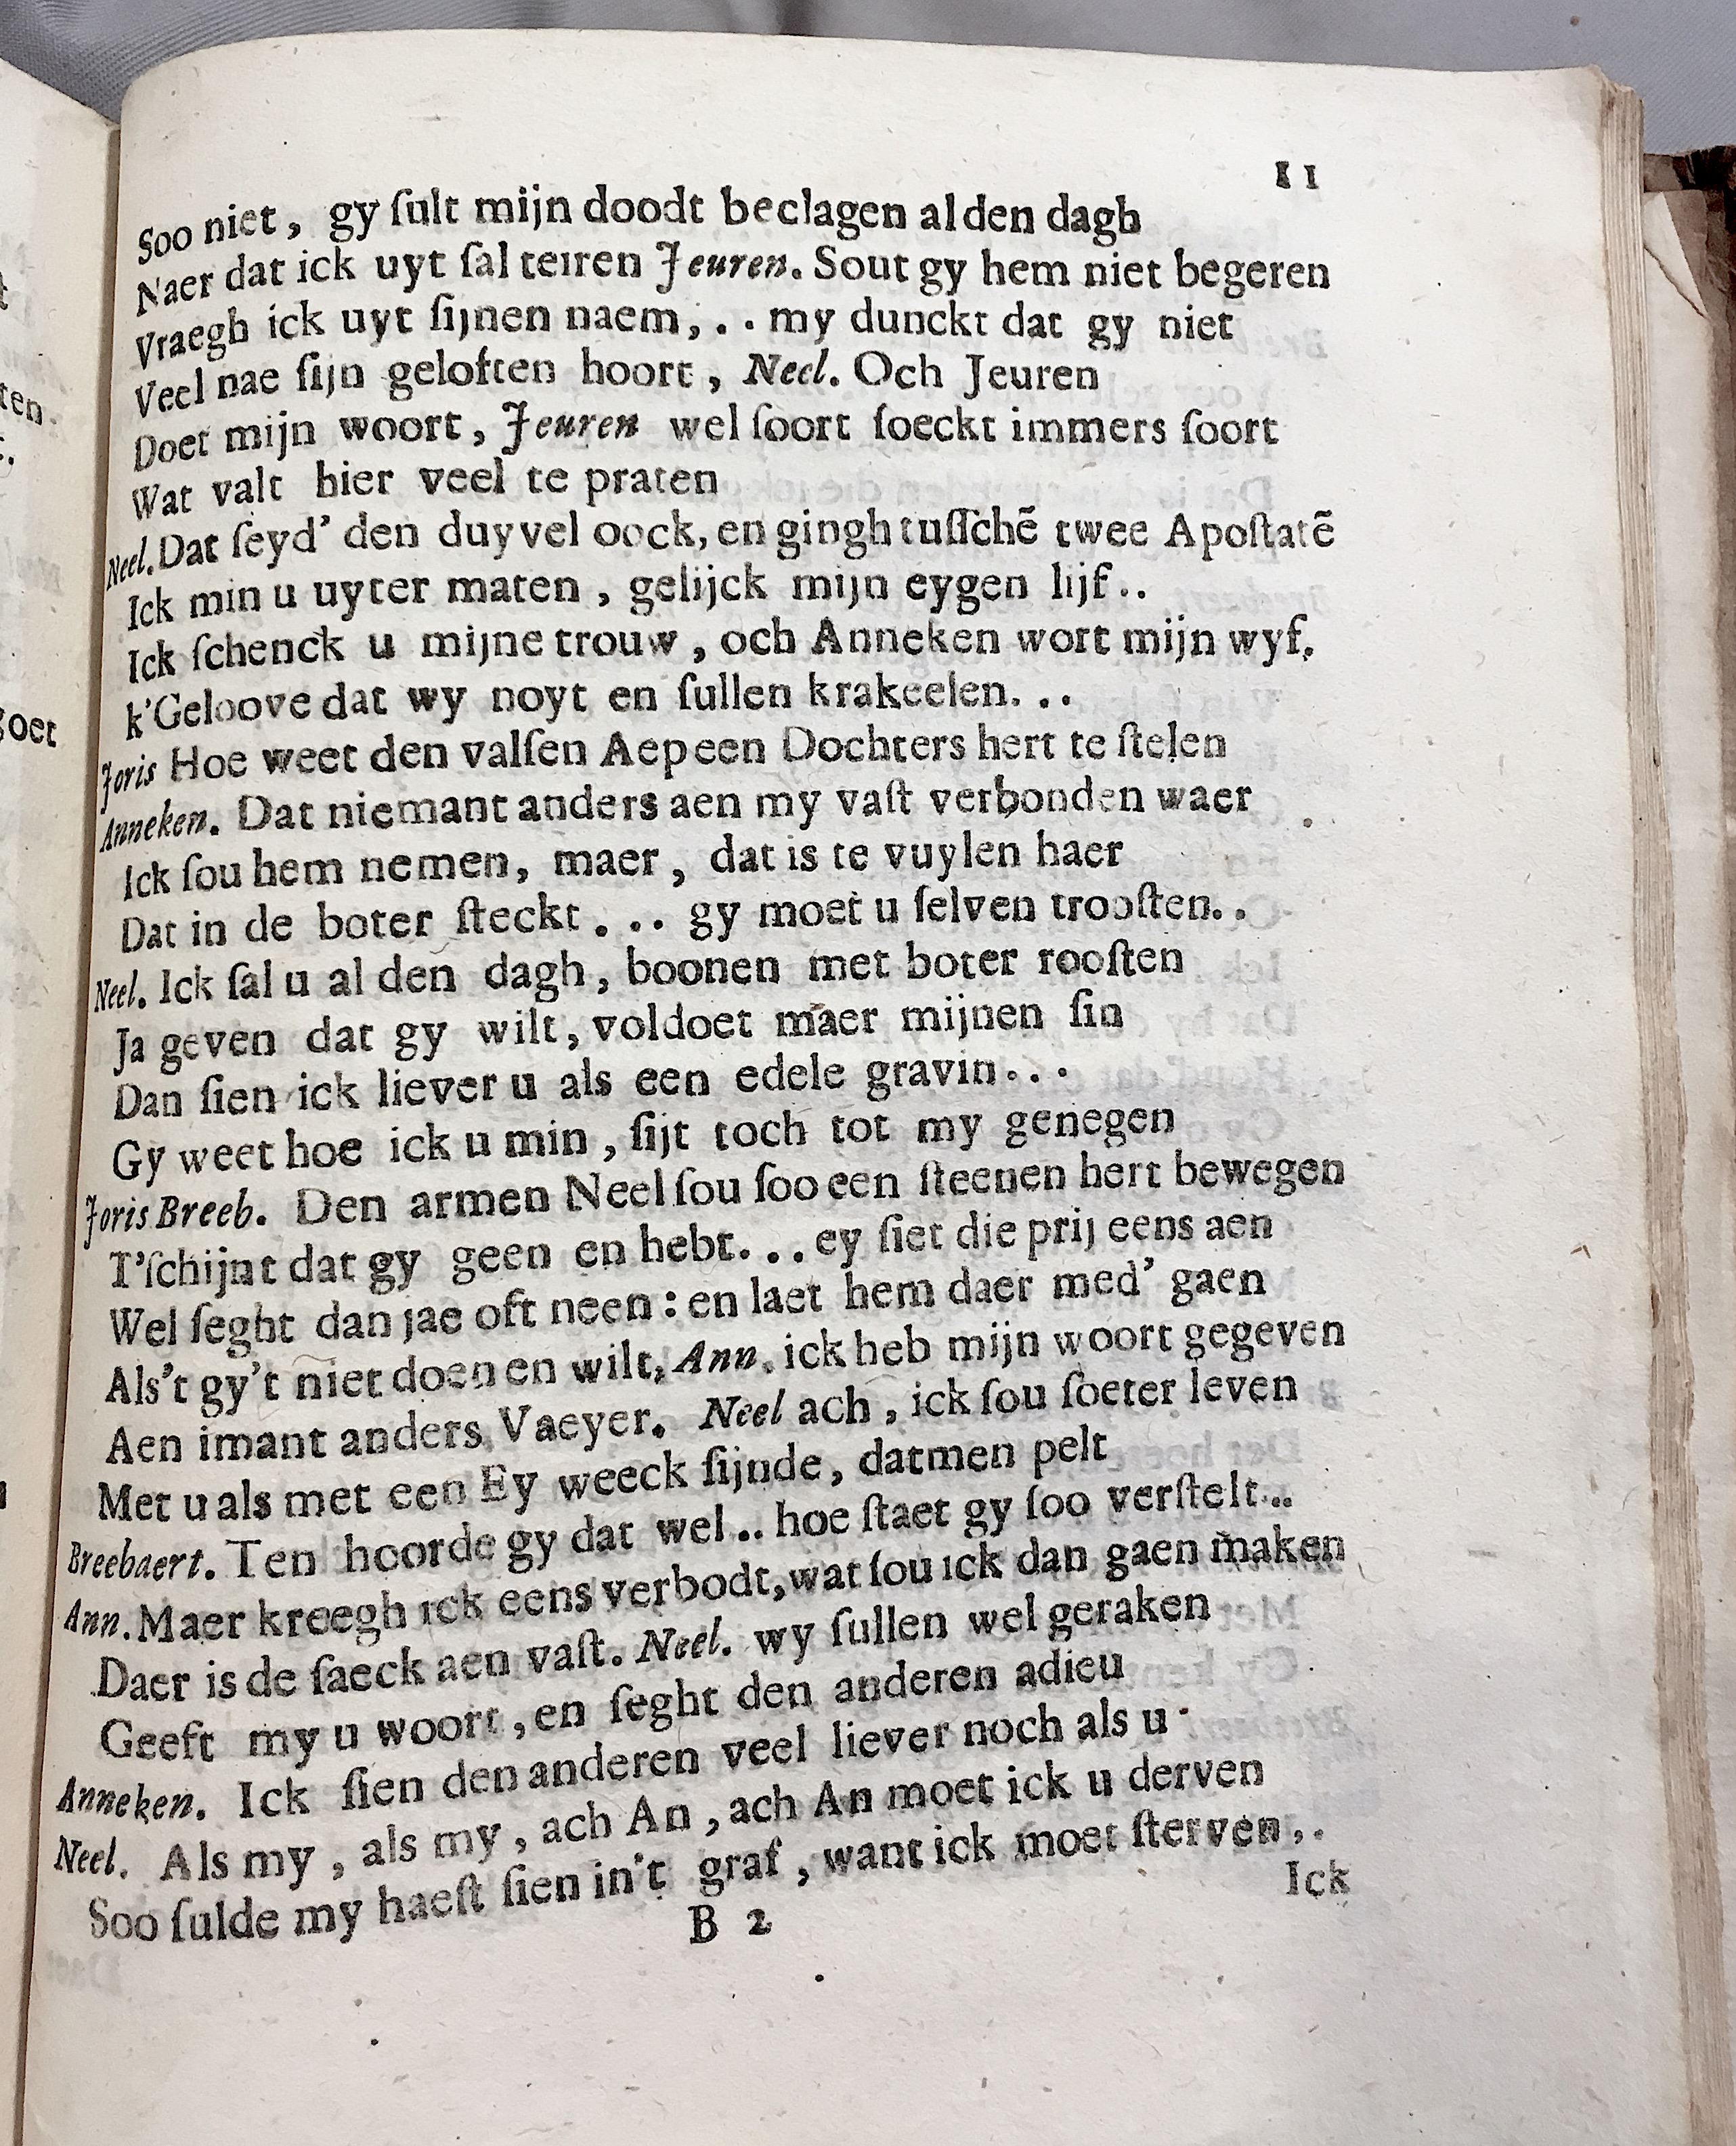 11
Soo niet, gy ſult mijn doodt beclagen al den dagh
Naer dat ick uyt ſal teiren Jeuren. Sout gy hem niet begeren
Vraegh ick uyt ſijnen naem,.. my dunckt dat gy niet
Veel nae ſijn geloften hoort, Neel. Och Jeuren
Doet mijn woort, Jeuren wel ſoort ſoeckt immers ſoort
Wat valt hier veel te praten
Neel. Dat ſeyd' den duyvel oock, en gingh tuſſchē twee Apoſtatē
Ick min u uyter maten, gelijck mijn eygen lijf..
Ick ſchenck u mijne trouw, och Anneken wort mijn wyf.
k'Geloove dat wy noyt en ſullen krakeelen...
Joris Hoe weet den valſen Aep een Dochters hert te ſtelen
Anneken. Dat niemant anders aen my vaſt verbonden waer
Ick ſou hem nemen, maer, dat is te vuylen haer
Dat in de boter ſteckt... gy moet u ſelven trooſten..
Neel. Ick ſal u al den dagh, boonen met boter rooſten
Ja geven dat gy wilt, voldoet maer mijnen ſin
Dan ſien ick liever u als een edele gravin...
Gy weet hoe ick u min, ſijt toch tot my genegen
Joris Breeb. Den armen Neel ſou ſoo een ſteenen hert bewegen
T'ſchijnt dat gy geen en hebt... ey ſiet die prij eens aen
Wel ſeght dan jae oft neen: en laet hem daer med' gaen
Als't gy't niet doen en wilt, Ann. ick heb mijn woort gegeven
Aen imant anders Vaeyer. Neel ach, ick ſou ſoeter leven
Met u als met een Ey weeck ſijnde, datmen pelt
Breebaert. Ten hoorde gy dat wel.. hoe ſtaet gy ſoo verſtelt...
Ann. Maer kreegh ick eens verbodt, wat ſou ick dan gaen maken
Daer is de ſaeck aen vaſt. Neel. wy ſullen wel geraken
Geeft my u woort, en ſeght den anderen adieu
Anneken. Ick ſien den anderen veel liever noch als u
Neel. Als my, als my, ach An, ach An moet ick u derven
Soo ſulde my haeſt ſien in't graf, want ick moet ſterven,.
B 2
Ick